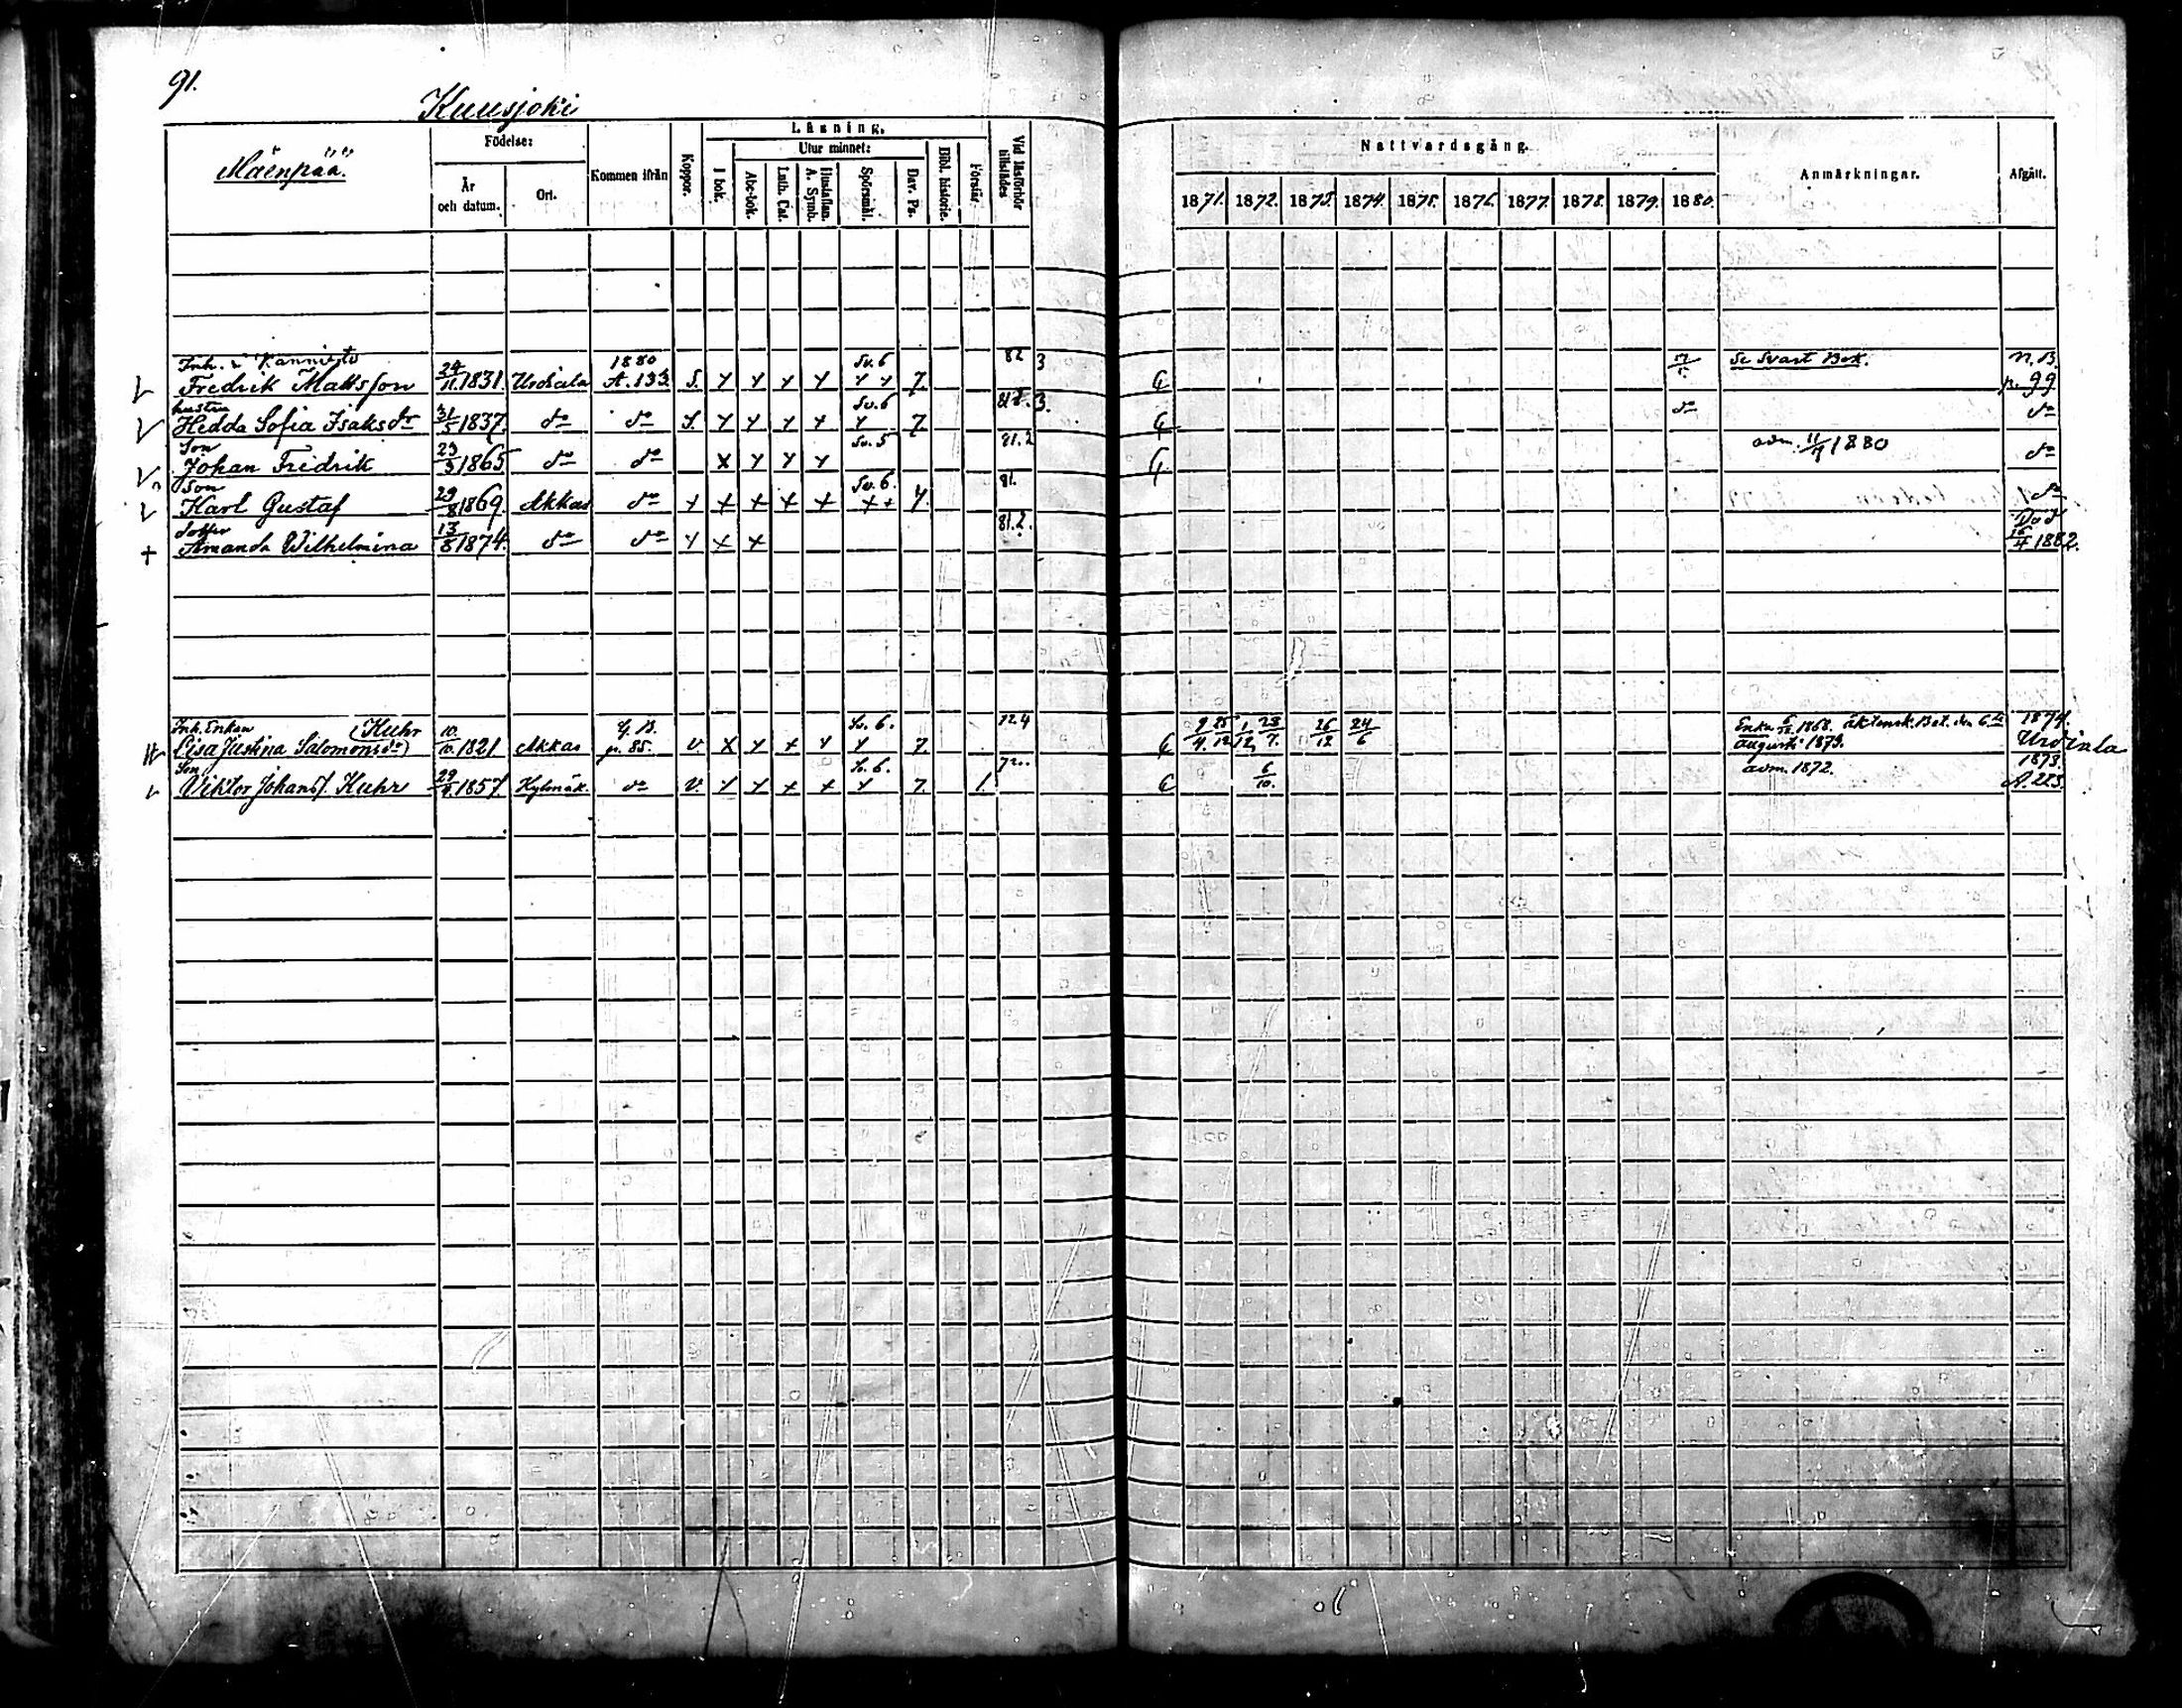 91.
Kuusjoki
Mäenpää.
Födelse:
År och datum.
Ort.
Kommen ifrån
Koppor.
Läsning.
I bok.
Utur minnet:
Abc-bok.
Luth. Cat.
Hustaflan. A. Symb.
Spörsmål.
Dav. Ps.
Bibl. historie.
Förstår.
Vid läsförhör tillstädes
Nattvardsgång.
1871. 1872. 1873. 1874. 1875. 1876. 1877. 1878. 1879. 1880.
Anmärkningar.
Afgått.
Inh. i Kanniesto 1880 Sv. 6 82 3 Se Svart Bok. N. B.
Fredrik Mattsson 24/11 1831. Urdiala A. 133. S. Y Y Y Y Y Y 7. G p. 99
hustru Sv. 6 3. do do
Hedda Sofia Isaksdr 31/5 1837. do do S. Y Y Y + Y 7 G
Son Sv. 5 81.2 adm. 1880
Johan Fredrik 23/3 1865 do do X Y Y Y G do
Son Sv. 6. 81.
Karl Gustaf 29/8 1869. Akkas do + + + + + + + 7. do
dotter 81.2. Död
Amanda Wilhelmina 13/8 1874. do do Y + + + 16/4 1882.
Inh. Enkan (Kuhr G. B. Sv. 6. 72 4 Enka 1868. äktensk. Bet. den 6 1874.
Lisa Justina Salomonsdr) 10/10. 1821 Akkas p. 85. V. X Y + Y Y 7. G 9/4. 25/12 1/12, 23/7. 26/12 24/6 augusti 1873. Urdiala
Son Sv. 6. 72.. 6/10. adm. 1872. 1873.
Viktor Johans f. Kuhr 29/9. 1857. Kylmäk. do V. Y Y + + Y 7. 1. G A. 223.